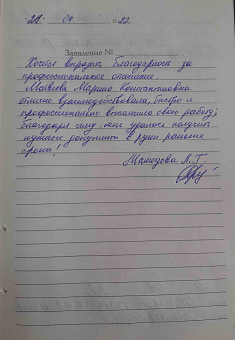 "28" 04 2022
Заявление №
Хотела выразить благодарность за
профессиональное
Матвеева Марина Константиновна
отлично взаимодействовала, быстро и
профессионально выполнила свою работу,
благодаря чему мне удалось получить
нужный документ в руки раньше
срока!
Мамедова Л.Г.